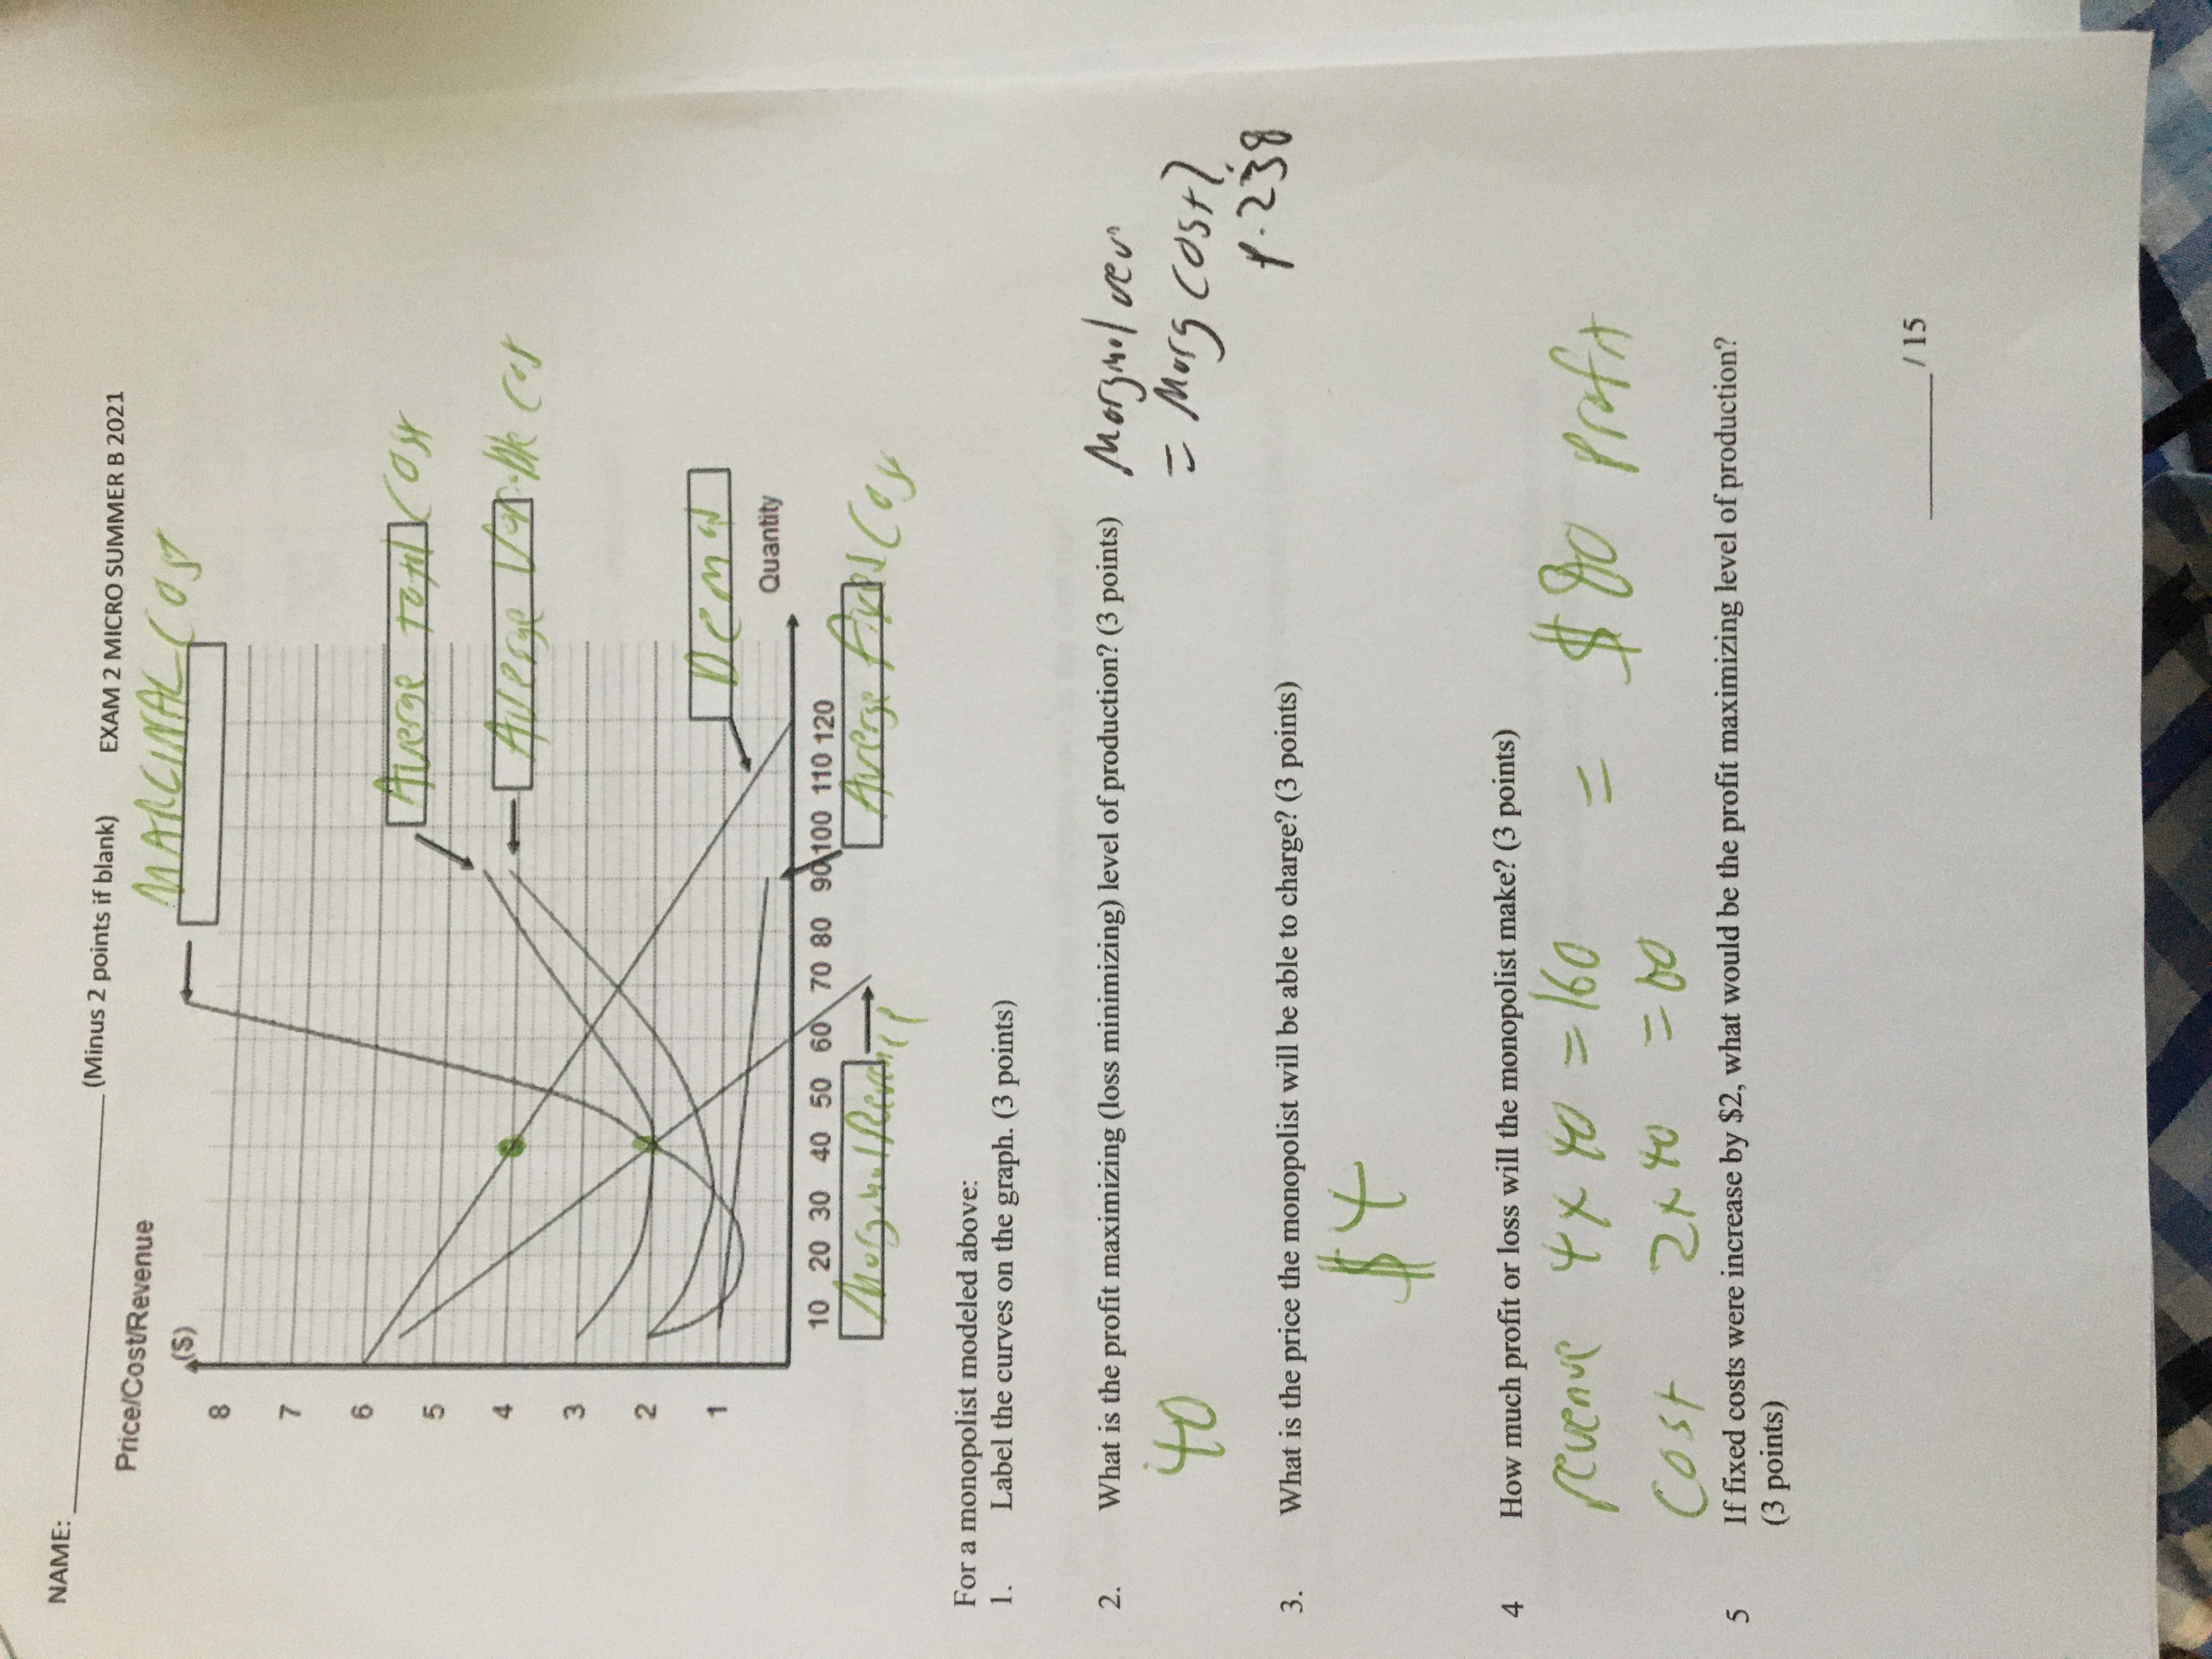 NAME: ____________ (Minus 2 points if blank) EXAM 2 MICRO SUMMER B 2021
Price/Cost/Revenue
($)
MARGINAL Cost
8
7
6
Average Total Cost
5
Average Cos
4
3
2
1
Quantity
10 20 30 40 50 60 70 80 90 100 110 120
Average Cos
For a monopolist modeled above:
1. Label the curves on the graph. (3 points)
2. What is the profit maximizing (loss minimizing) level of production? (3 points)
40
= Marg Cost?
p. 238
3. What is the price the monopolist will be able to charge? (3 points)
$4
4 How much profit or loss will the monopolist make? (3 points)
revenue 4 x 40 = 160
= $80 Profit
Cost 2 x 40 =
5 If fixed costs were increase by $2, what would be the profit maximizing level of production?
(3 points)
______ / 15